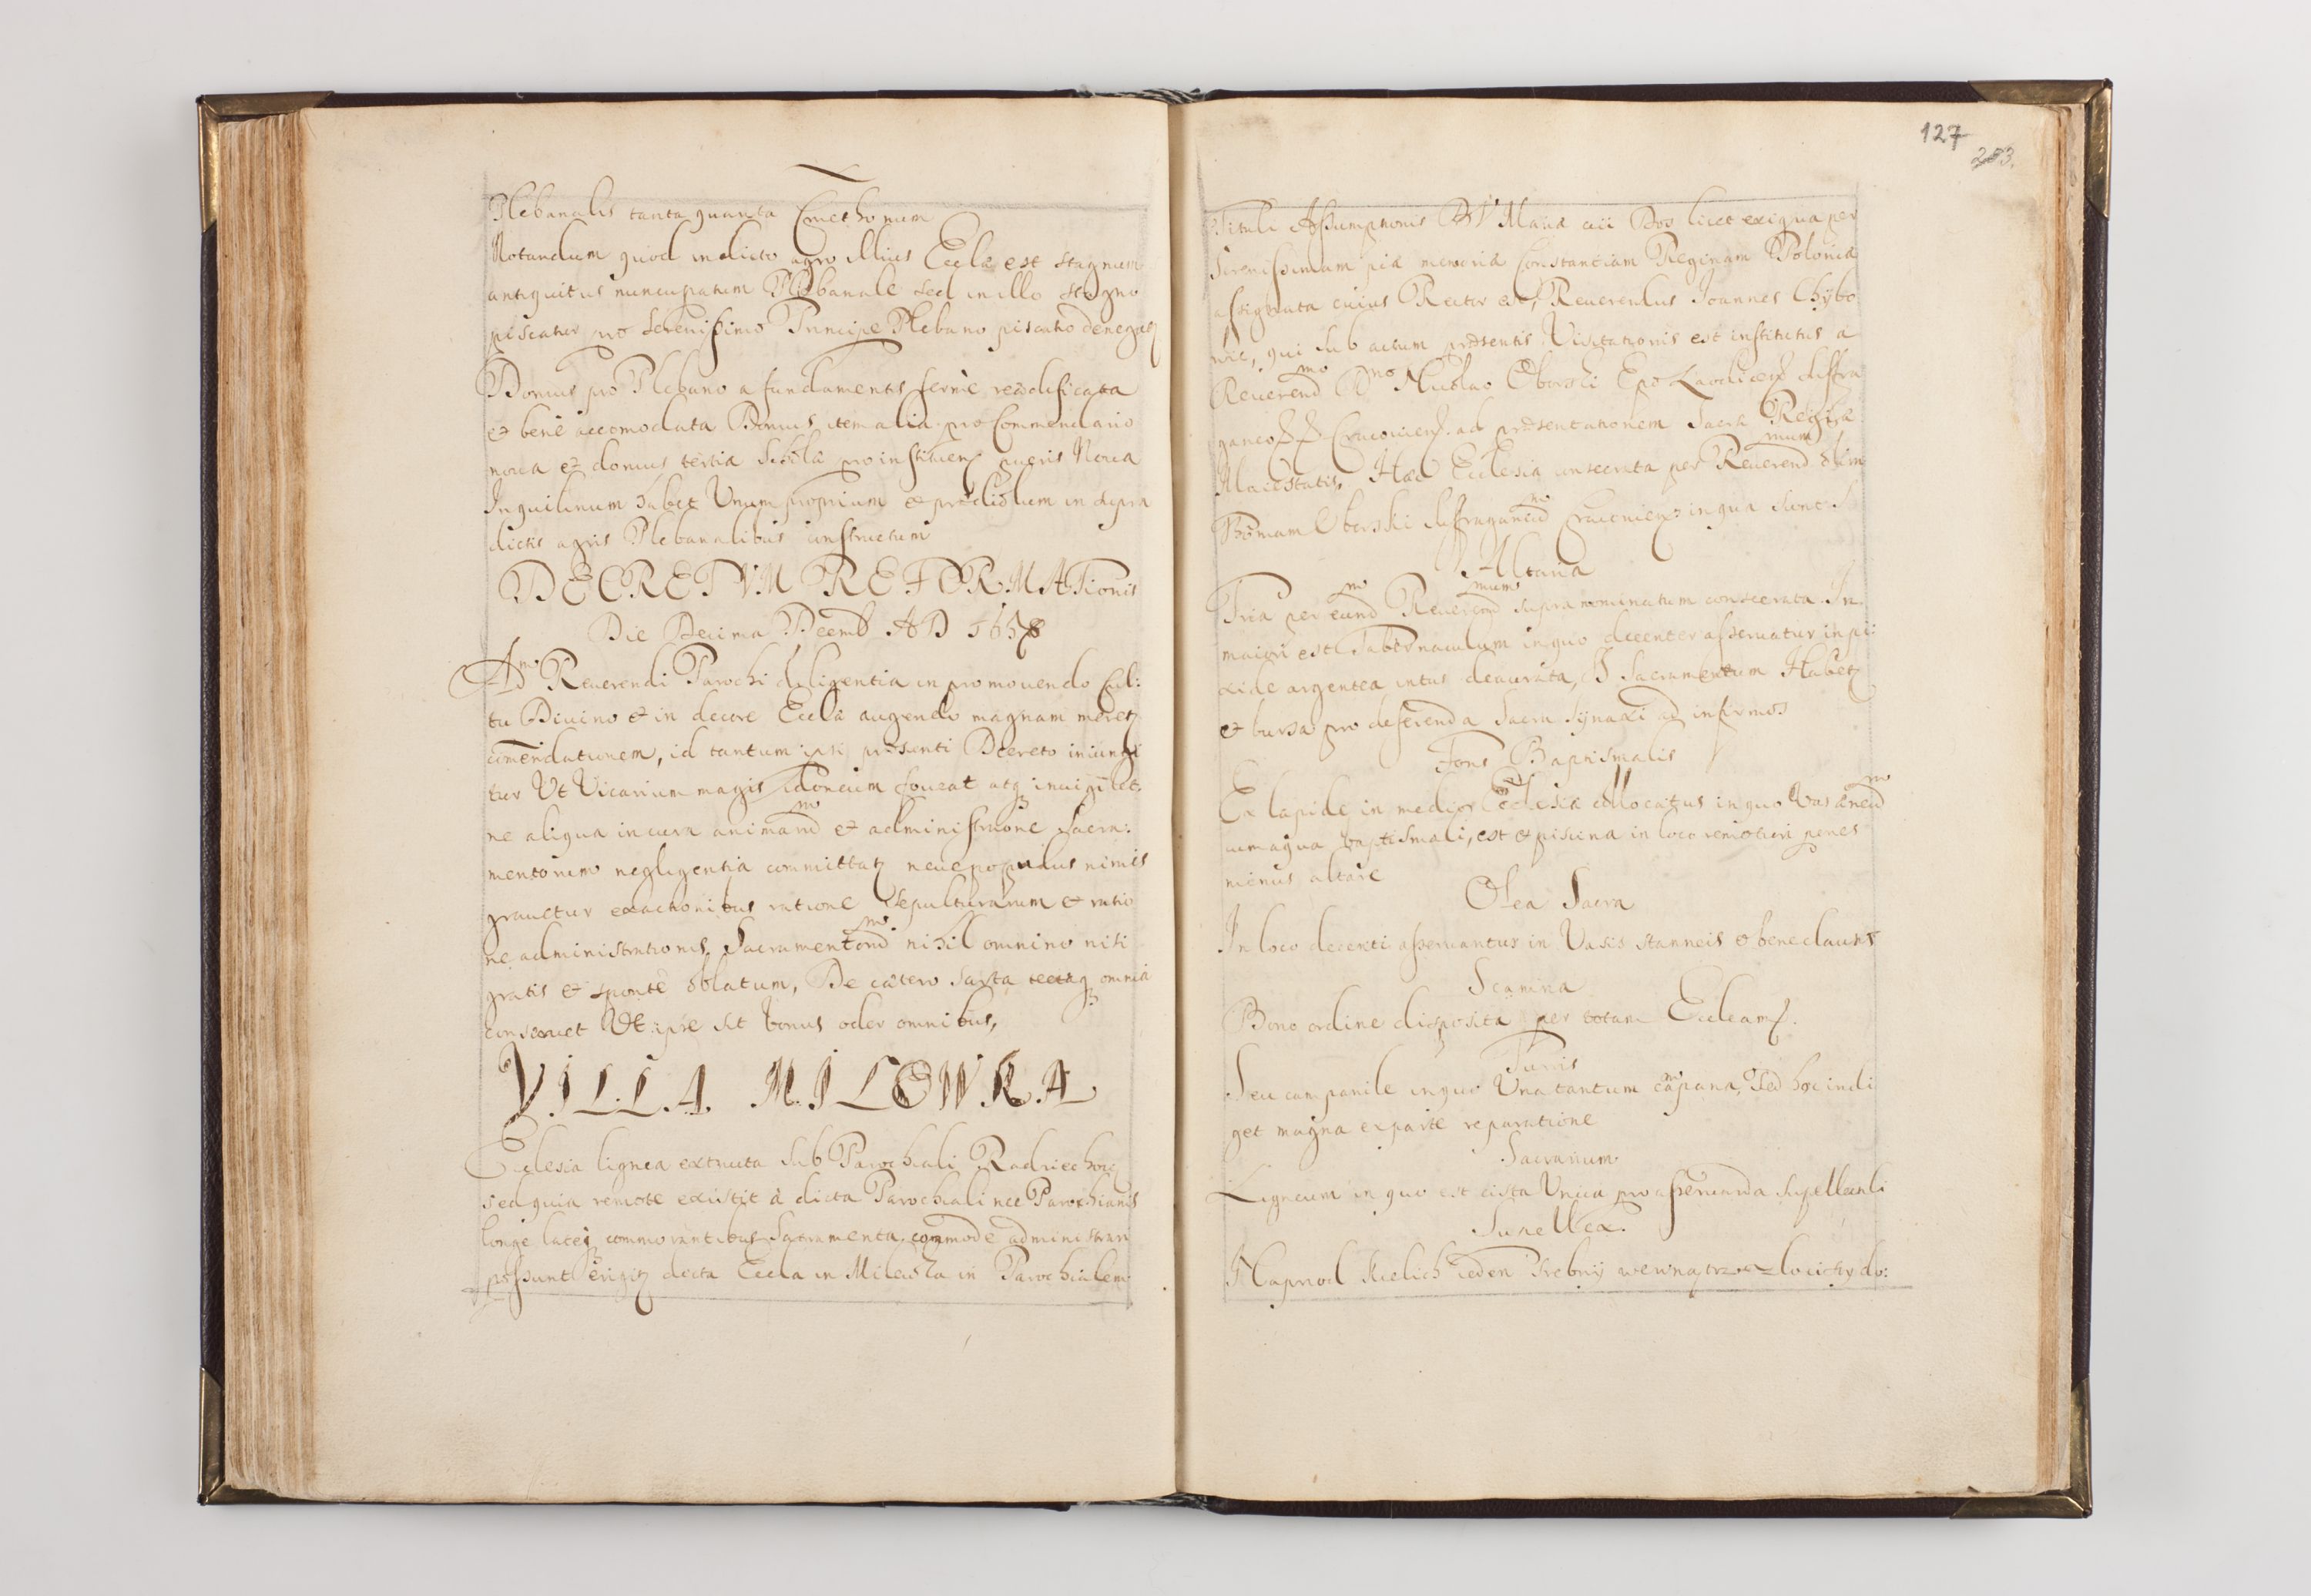 Plebanalis tanta quanta Cmethonum
Notandum quod in dicto agro illius Eccla est stagnum
antiquitus nuncupatum Plebanale sed in illo stagno
piscatur pro Serenissimo Principe Plebano piscatio denegat
Domus pro Plebano a fundamentis fermè reædificata
et benè accomodata Domus item alia pro Commendario
noua et domus tertia Schola pro instituen pueris Noua
Inquilinum habet Unum proprium et prædiolum in supra
dictis agris Plebanalibus constructum
DECRETVM REFORMATionis
Die Decima Decemb AD 1658
Ad Reuerendi Parochi diligentia in promouendo Cul:
tu Diuino et in decore Eccla augendo magnam meret
comendationem, id tantum ipsi præsenti Decreto iniungi
tur Vt Vicarium magis idoneum foueat atq inuigilet,
ne aliqua in cura animard et administratione Sacra:
mentorum negligentia committat neue populus nimis
grauetur exactionibus ratione sepulturarum et ratio
ne administrationis Sacramentord nihil omnino nisi
gratis et spontè oblatum, De cætero sarta tectaq omnia
conseruet Vt ipse sit bonus odor omnibus,
VILLA MILOWKA
Ecclesia lignea extructa sub Parochiali Radziechow
sed quia remote existit à dicta Parochiali nec Parochianis
longe lateq commorantibus Sacramenta commodè administrari
possunt erigit dicta Eccla in Milowka in Parochialem
127
203.
Tituli Assumptionis BV Mariæ cui Dos licet exigua per
Serenissimam piæ memoriæ Constantiam Reginam Poloniæ
assignata cuius Rector est, Reuerendus Joannes Chybo
wic, qui sub actum præsentis Visitationis est institutus a
Reuerend mo D no Nicolao Oborski Epo Laodicen Suffra
ganeo Cracouien. ad præsentationem Sacræ Regiæ
Maiestatis, Hæc Ecclesia consecrata per Reuerend mum olim
Thomam Oborski Suffraganeum Cracouien in qua sunt
Altaria
Tria per eund m Reuerend mum supranominatum consecrata. In
maiori est Tabernaculum in quo decenter asseruatur in pi:
xide argentea intus deaurata, S Sacramentum Habet
et bursa pro deferenda Sacra Synaxi ad infirmos
Fons Baptismalis
Ex lapide in medio Ecclesiæ collocatus in quo Vas æneum
cum aqua baptismali, est et piscina in loco remotiori penes
minus altare
Olea Sacra
In loco decenti asseruantur in Vasis stanneis et bene clausis
Scamna
Bono ordine disposita per totam Eccleam.
Turris
Seu campanile in quo Vna tantum capana, Sed hoc indi
get magna ex parte reparatione
Sacrarium
Ligneum in quo est cista Vnica pro asseruanda supellectili
Supellex.
Naprzod Kielich ieden srebrny wewnątrz złocisty do: